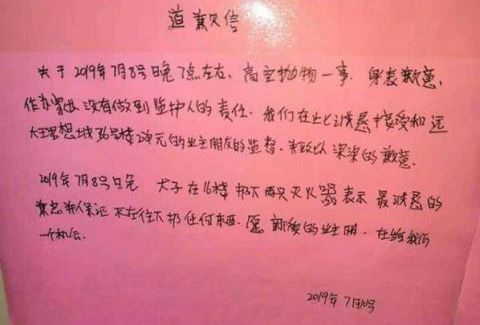 道歉信
关于2019年7月8号晚7点左右，高空抛物一事，身表歉意，
作为家长没有做到监护人的责任。我们在此诚恳接受和远
大理想城36号楼2单元的业主朋友的监督，来致以深深的歉意。
2019年7月8号晚 犬子在16楼扔下两只灭火器表示最诚恳的
歉意和保证不在往下扔任何东西，愿新度的业主朋，在给我们
一个机会。
2019年7月10号